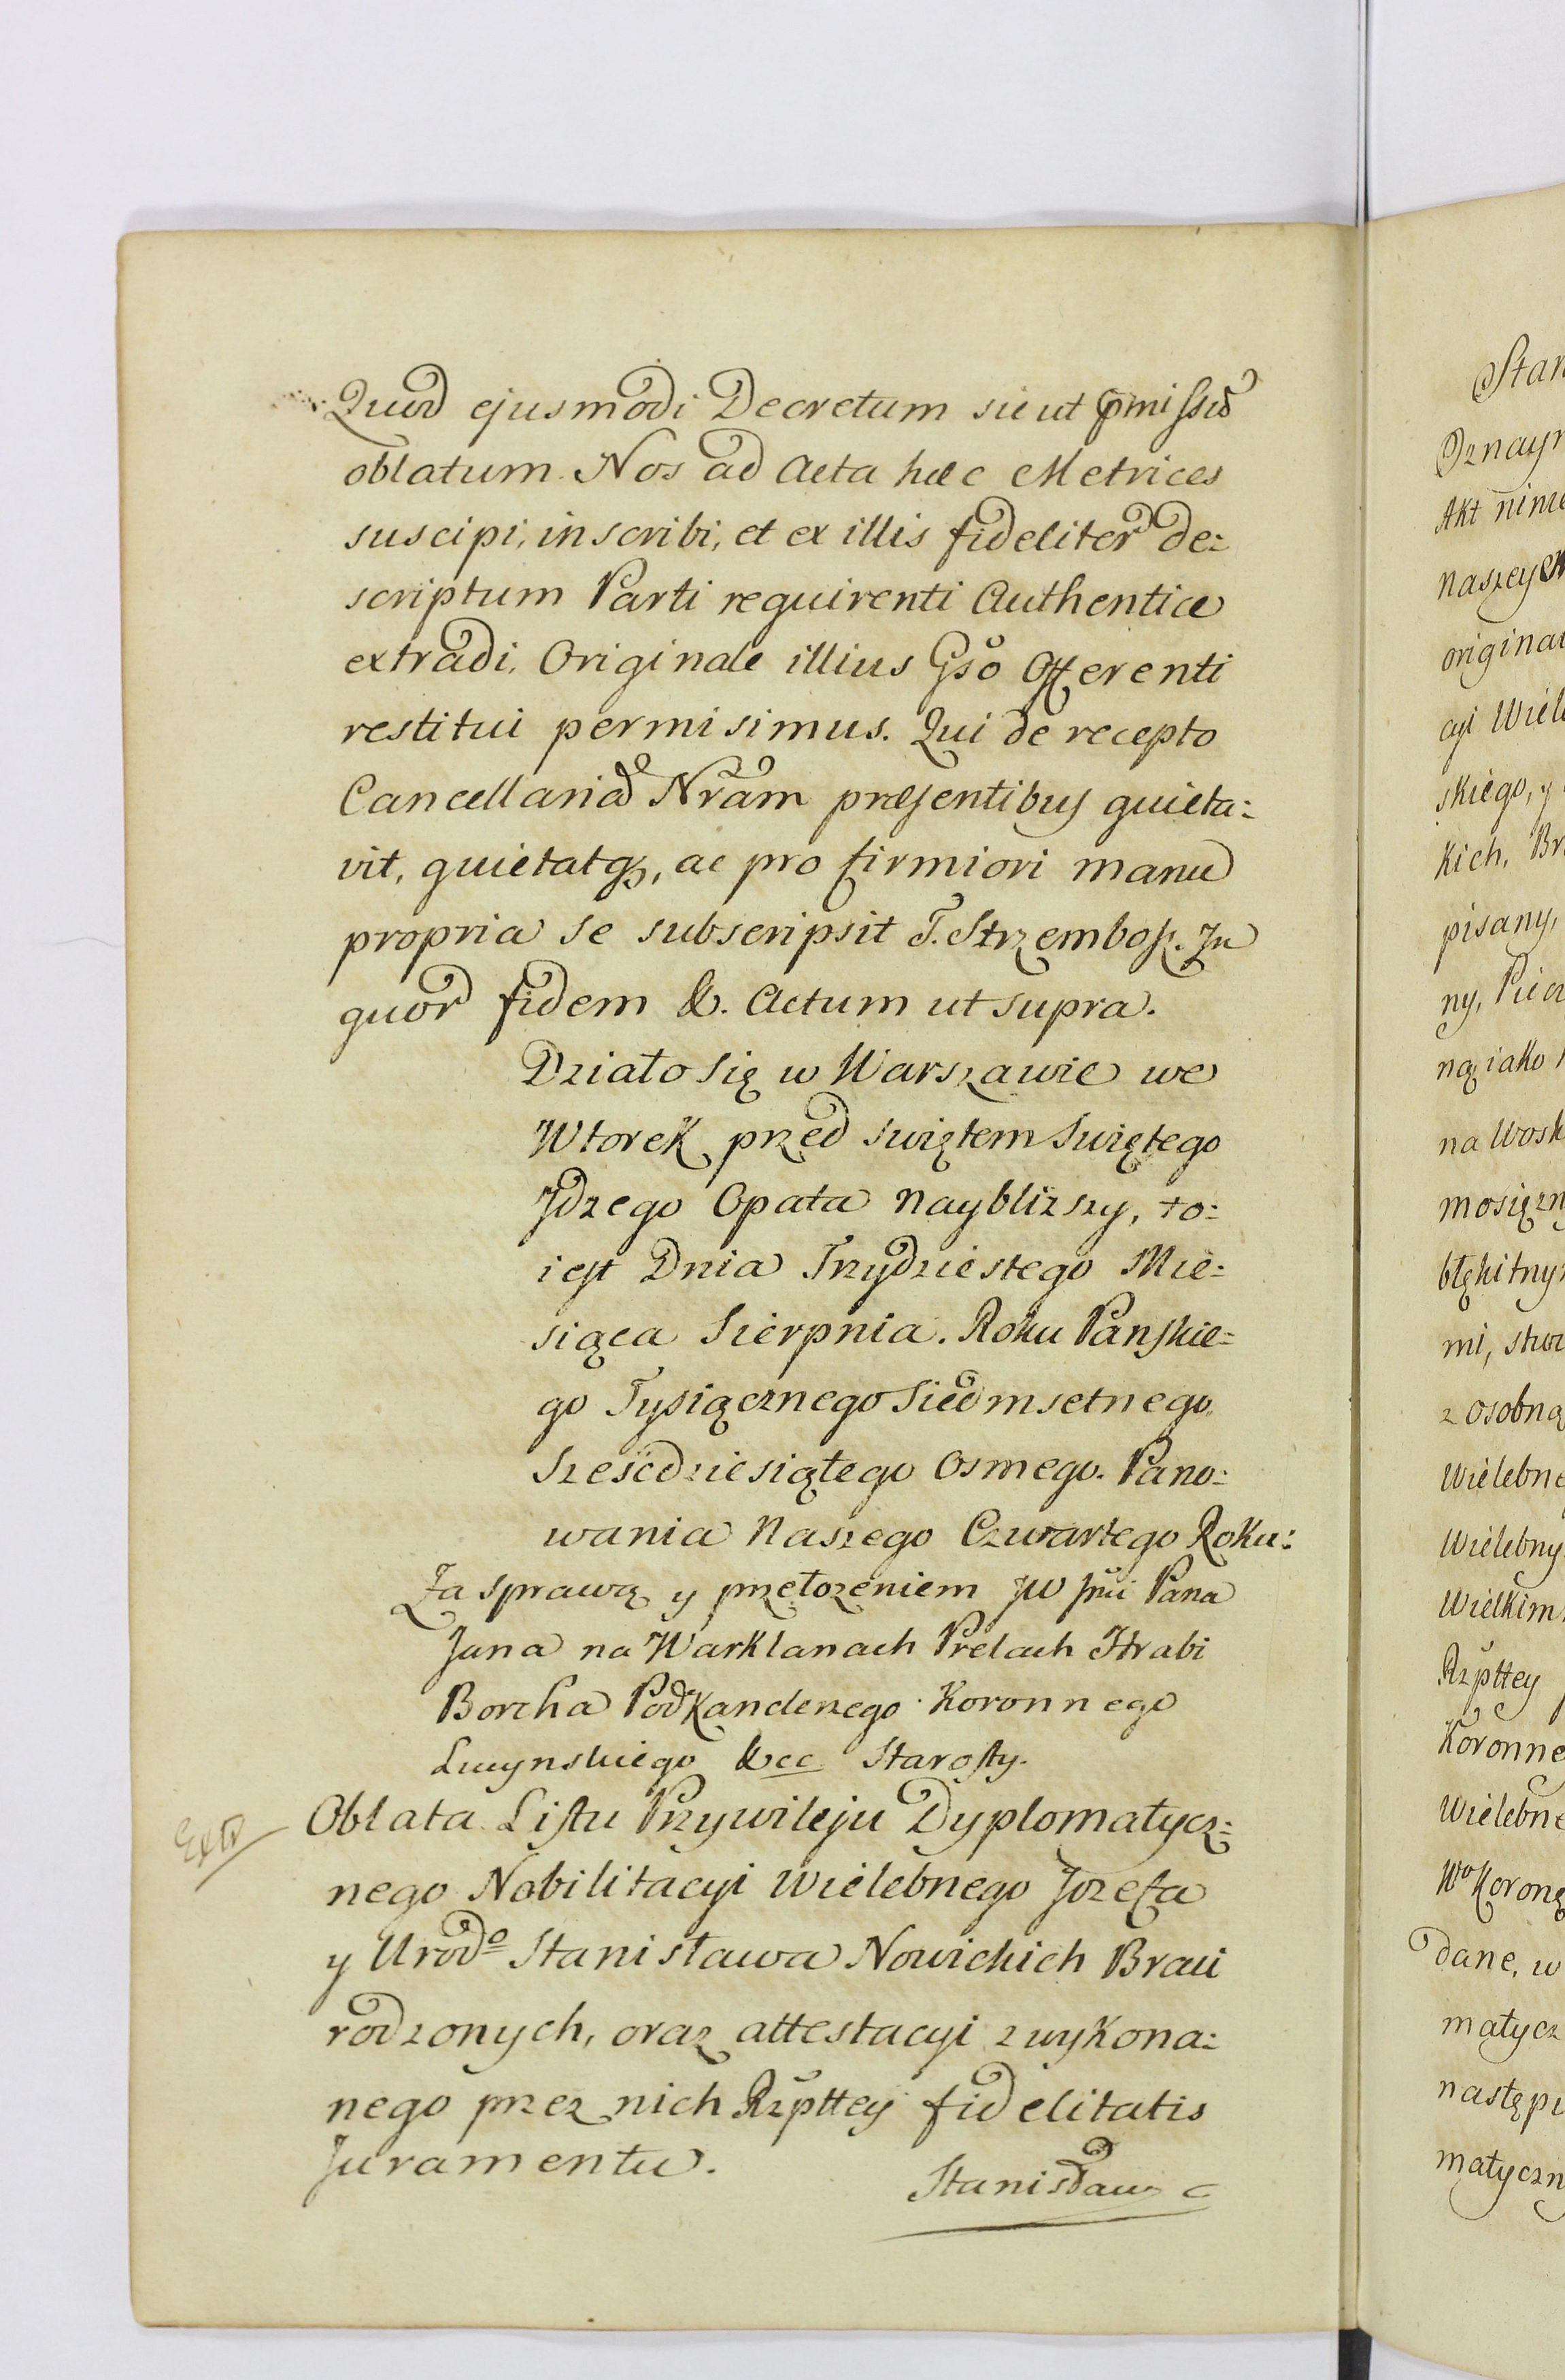 Quod ejusmodi Decretum sicut pmissũ
oblatum. Nos ad Acta hæc Metrices
suscipi, inscribi, et ex illis fideliter de:
scriptum Parti requirenti Authentice
extradi, Originale illius Gso Offerenti
restitui permisimus. Qui de recepto
Cancellariã Nram præsentibus quieta:
vit, quietatq, ac pro firmiori manu
propria se subscripsit T. Strzembosz. In
quor fidem &. Actum ut supra.
Działo się w Warszawie we
Wtorek przed swiętem Swiętego
Jdzego Opata nayblizszy, to:
iest Dnia Trzydziestego Mie:
siąca Sierpnia. Roku Panskie:
go Tysiącznego Siedmsetnego
Szescdziesiątego Osmego. Pano:
wania Naszego Czwartego Roku:
Za sprawą y przełozeniem JW Jmci Pana
Jana na Warklanach Prelach Hrabi
Borcha Podkanclerzego Koronnego
Lucynskiego &cc Starosty.
Extr Oblata Listu Przywileju Dyplomatycz:
nego Nobilitacyi Wielebnego Jozefa
y Urodo Stanisława Nowickich Braci
rodzonych, oraz attestacyi z wykona:
nego przez nich Rzpttey fidelitatis
Juramentu.
Stanisław
Stan
Oznaym
Akt ninie
naszey M
origina
cyi Wiele
skiego, y
kich, Br
pisany,
ny, Piecz
ną iako
na Wosk
mosiężn
błękitny
mi, stwi
z osobną
Wielebne
Wielebny
Wielkim
Rzpttey
Koronne
Wielebne
Wo Koronę
dane, w
matycz
następu
matyczn